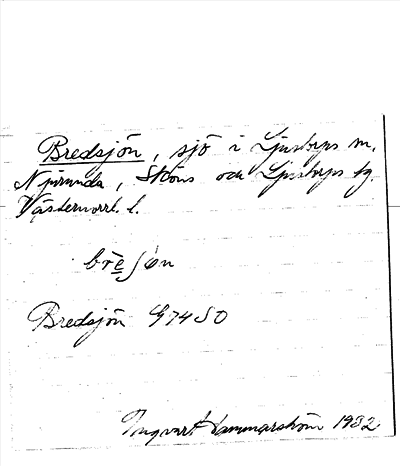 Bredsjön, sjö i Ljustorps sn,
Njurunda, Sköns och Ljustorps tg.
Västernorrl. l.
Bredsjön G74SO
Ingvar Hammarström 1932